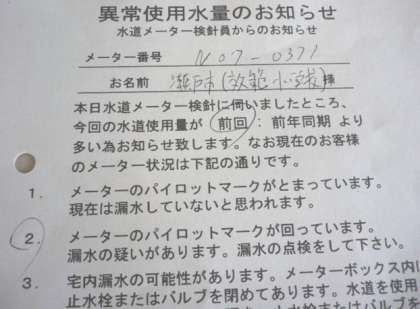 異常使用水量のお知らせ
水道メーター検針員からのお知らせ
メーター番号 N07-0371
お名前 瀬戸市(效範小学校)様
本日水道メーター検針に伺いましたところ、
今回の水道使用量が 前回 : 前年同期 より
多い為お知らせ致します。なお現在のお客様
のメーター状況は下記の通りです。
1. メーターのパイロットマークがとまっています。
現在は漏水していないと思われます。
2. メーターのパイロットマークが回っています。
漏水の疑いがあります。漏水の点検をして下さい。
3. 宅内漏水の可能性があります。メーターボックス内に
止水栓またはバルブを閉めてあります。水道を使用